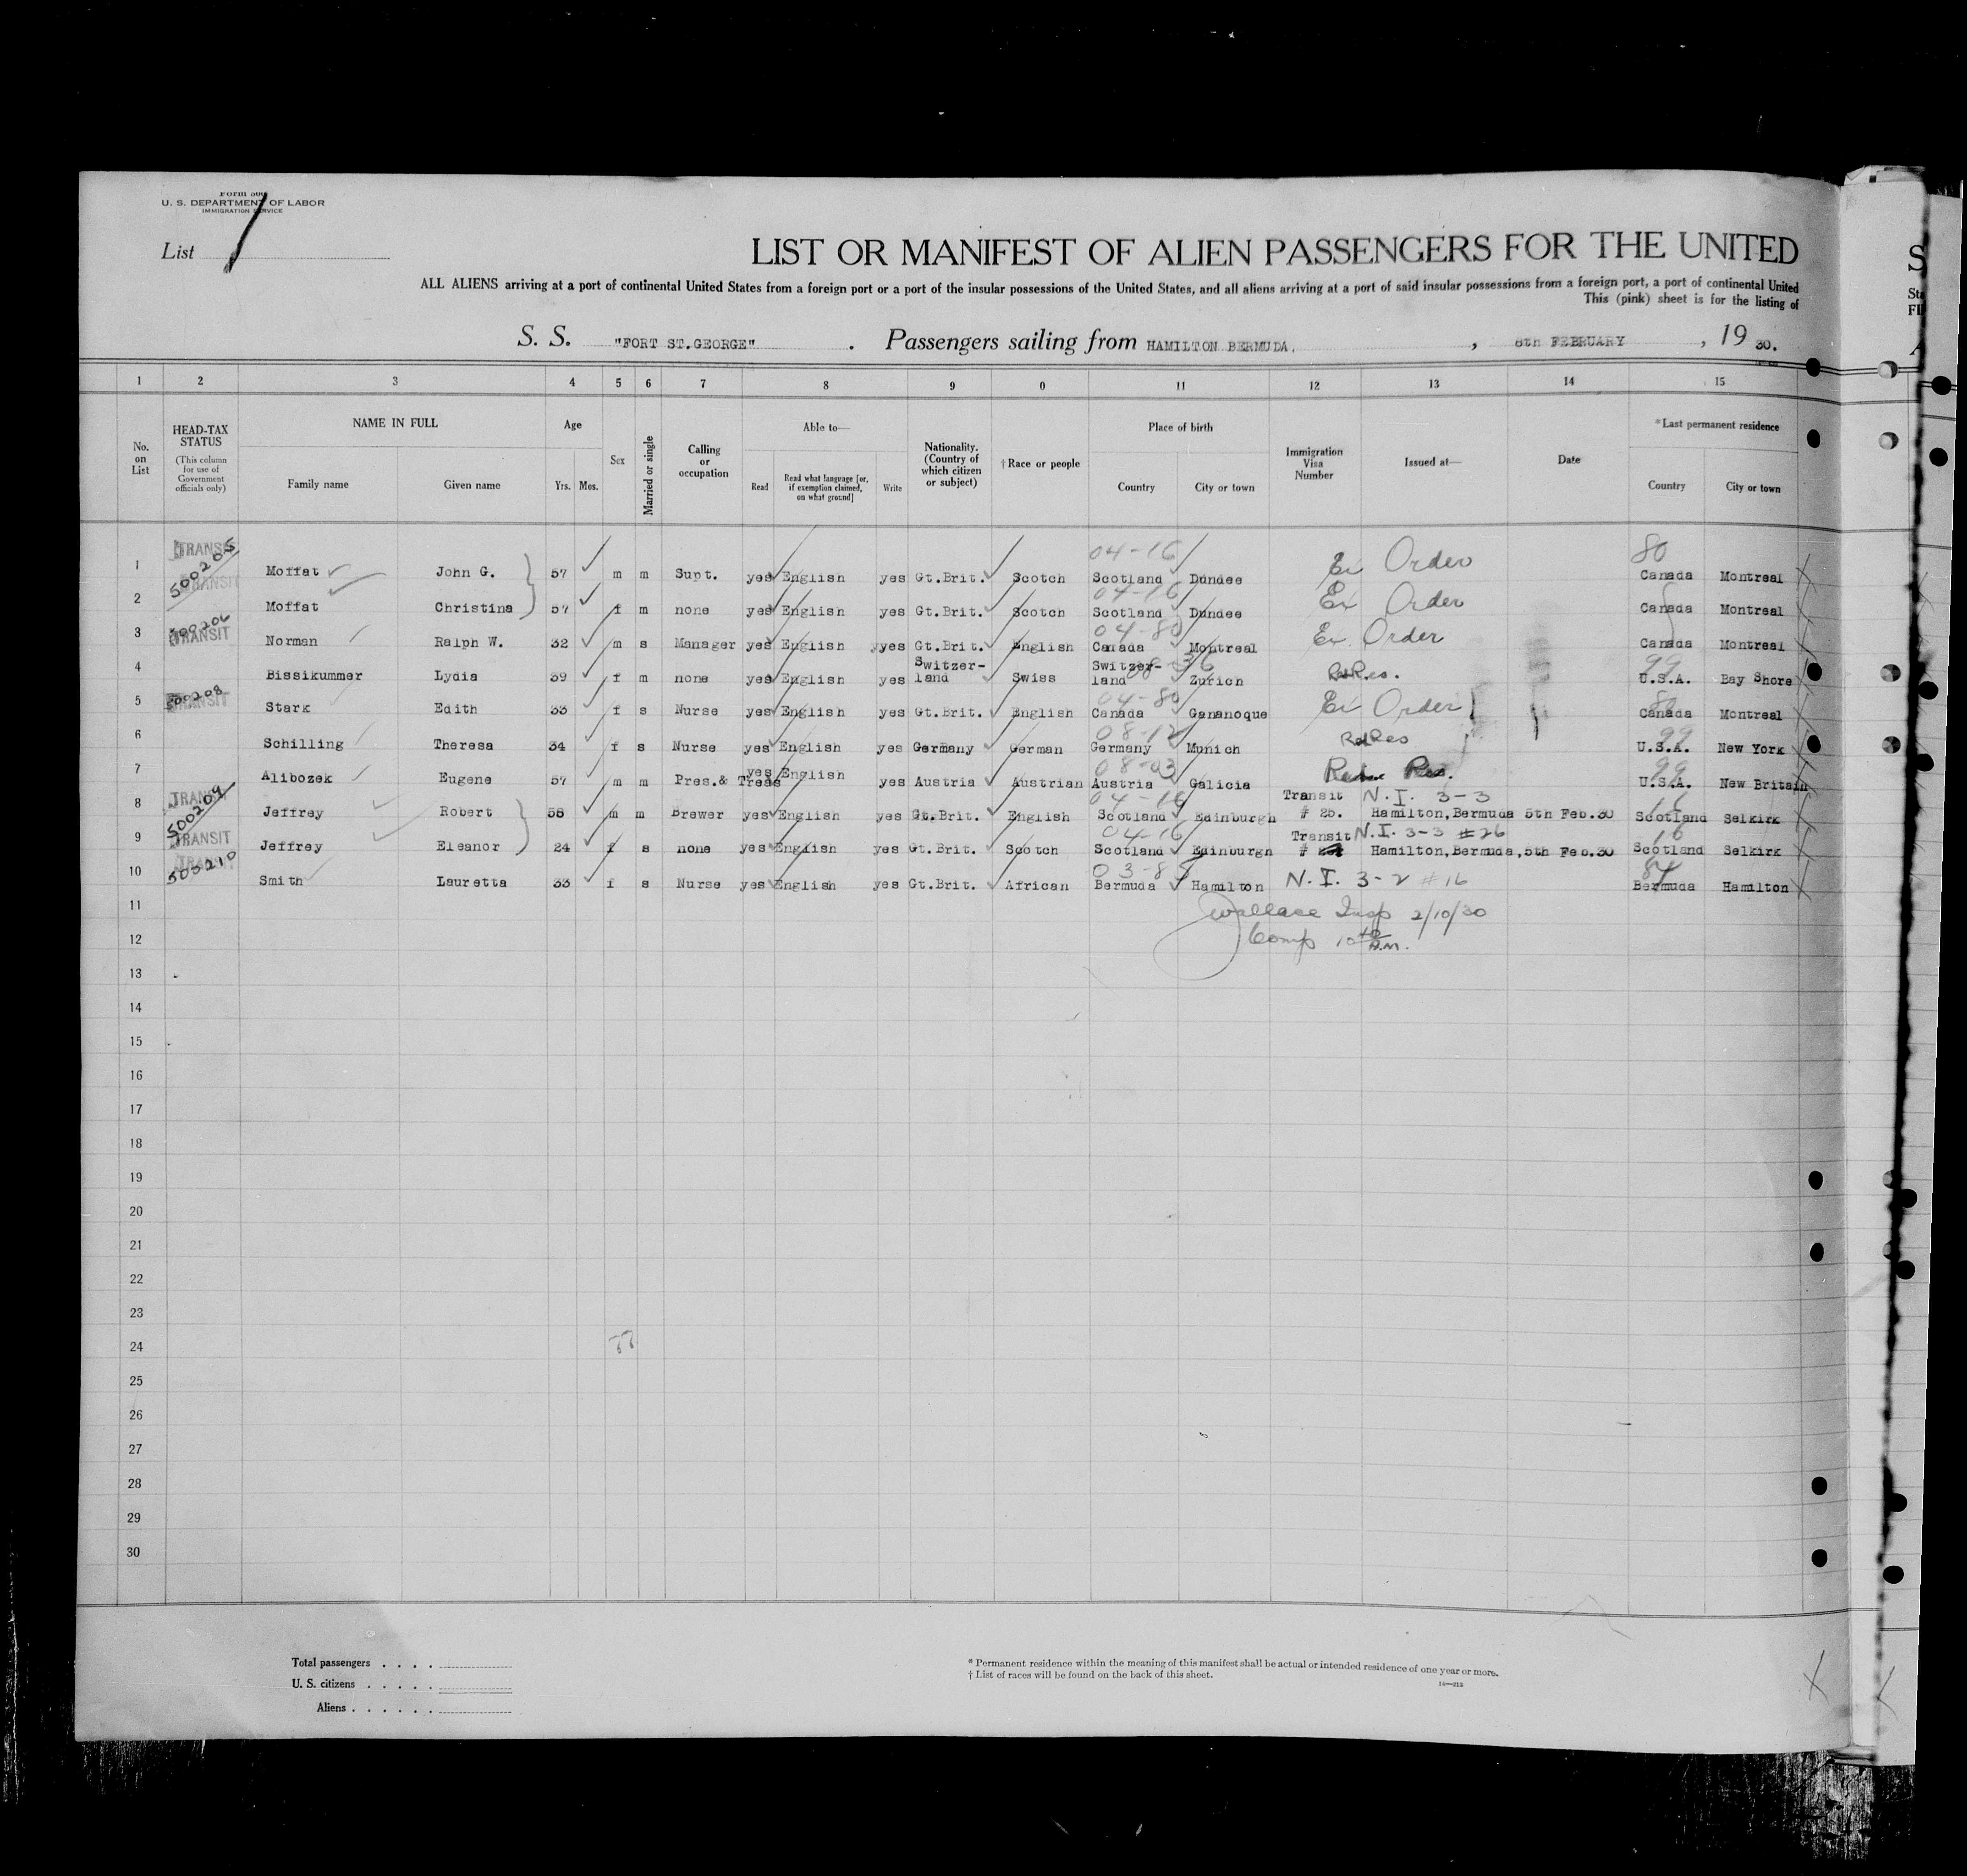 Form 500
U. S. DEPARTMENT OF LABOR
IMMIGRATION SERVICE
List 1
LIST OR MANIFEST OF ALIEN PASSENGERS FOR THE UNITED
ALL ALIENS arriving at a port of continental United States from a foreign port or a port of the insular possessions of the United States, and all aliens arriving at a port of said insular possessions from a foreign port, a port of continental United
This (pink) sheet is for the listing of
S. S. "FORT ST.GEORGE" . Passengers sailing from HAMILTON BERMUDA. , 8th FEBRUARY , 19 30.
1 2 3 4 5 6 7 8 9 0 11 12 13 14 15
No. on List
HEAD-TAX STATUS
(This column for use of Government officials only)
NAME IN FULL
Family name Given name
Age
Yrs. Mos.
Sex
Married or single
Calling or occupation
Able to—
Read Read what language [or, if exemption claimed, on what ground] Write
Nationality. (Country of which citizen or subject)
† Race or people
Place of birth
Country City or town
Immigration Visa Number
Issued at—
Date
*Last permanent residence
Country City or town
1 TRANSIT 500205 Moffat John G. 57 m m Supt. yes English yes Gt.Brit. Scotch 04-16 Scotland Dundee Ex Order 80 Canada Montreal
2 TRANSIT Moffat Christina 57 f m none yes English yes Gt.Brit. Scotch 04-16 Scotland Dundee Ex Order Canada Montreal
3 500206 TRANSIT Norman Ralph W. 32 m s Manager yes English yes Gt.Brit. English 04-80 Canada Montreal Ex Order Canada Montreal
4 Bissikummer Lydia 39 f m none yes English yes Switzer-land Swiss Switzer-land Zurich Ret Res. 99 U.S.A. Bay Shore
5 500208 TRANSIT Stark Edith 33 f s Nurse yes English yes Gt.Brit. English 04-80 Canada Gananoque Ex Order 80 Canada Montreal
6 Schilling Theresa 34 f s Nurse yes English yes Germany German 08-12 Germany Munich Ret Res 99 U.S.A. New York
7 Alibozek Eugene 57 m m Pres.& Treas yes English yes Austria Austrian 08-03 Austria Galicia Res. 99 U.S.A. New Britain
8 TRANSIT 500209 Jeffrey Robert 58 m m Brewer yes English yes Gt.Brit. English 04-16 Scotland Edinburgh Transit # 25. N.I. 3-3 Hamilton,Bermuda 5th Feb.30 16 Scotland Selkirk
9 TRANSIT Jeffrey Eleanor 24 f s none yes English yes Gt.Brit. Scotch 04-16 Scotland Edinburgh Transit # N.I. 3-3 #26 Hamilton,Bermuda,5th Feb.30 16 Scotland Selkirk
10 TRANSIT 503210 Smith Lauretta 33 f s Nurse yes English yes Gt.Brit. African Bermuda Hamilton N.I. 3-2 #16 Bermuda Hamilton
11 Wallace Insp 2/10/30
12 Comp 10 A.M.
13
14
15
16
17
18
19
20
21
22
23
24 77
25
26
27
28
29
30
Total passengers . . . .
U. S. citizens . . . . .
Aliens . . . . . .
* Permanent residence within the meaning of this manifest shall be actual or intended residence of one year or more.
† List of races will be found on the back of this sheet.
14—213